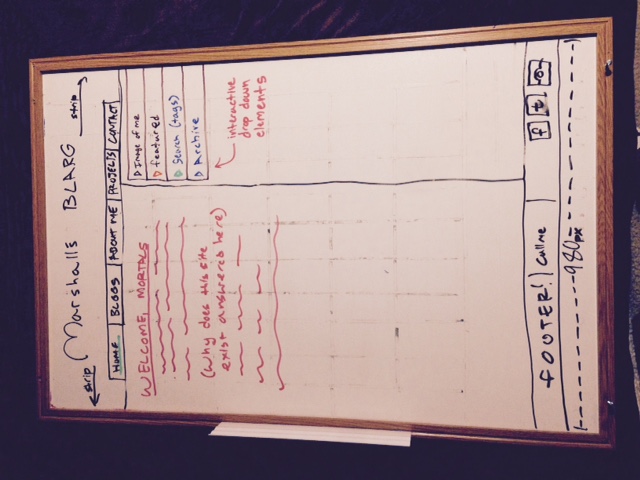 strip Marshalls BLARG strip
HOME BLOGS ABOUT ME PROJECTS CONTACT
WELCOME, MORTALS
(Why does this site
exist answered here)
Image of me
featured
Search (tags)
Archive
interactive
drop down
elements
FOOTER! Call me f t
980px